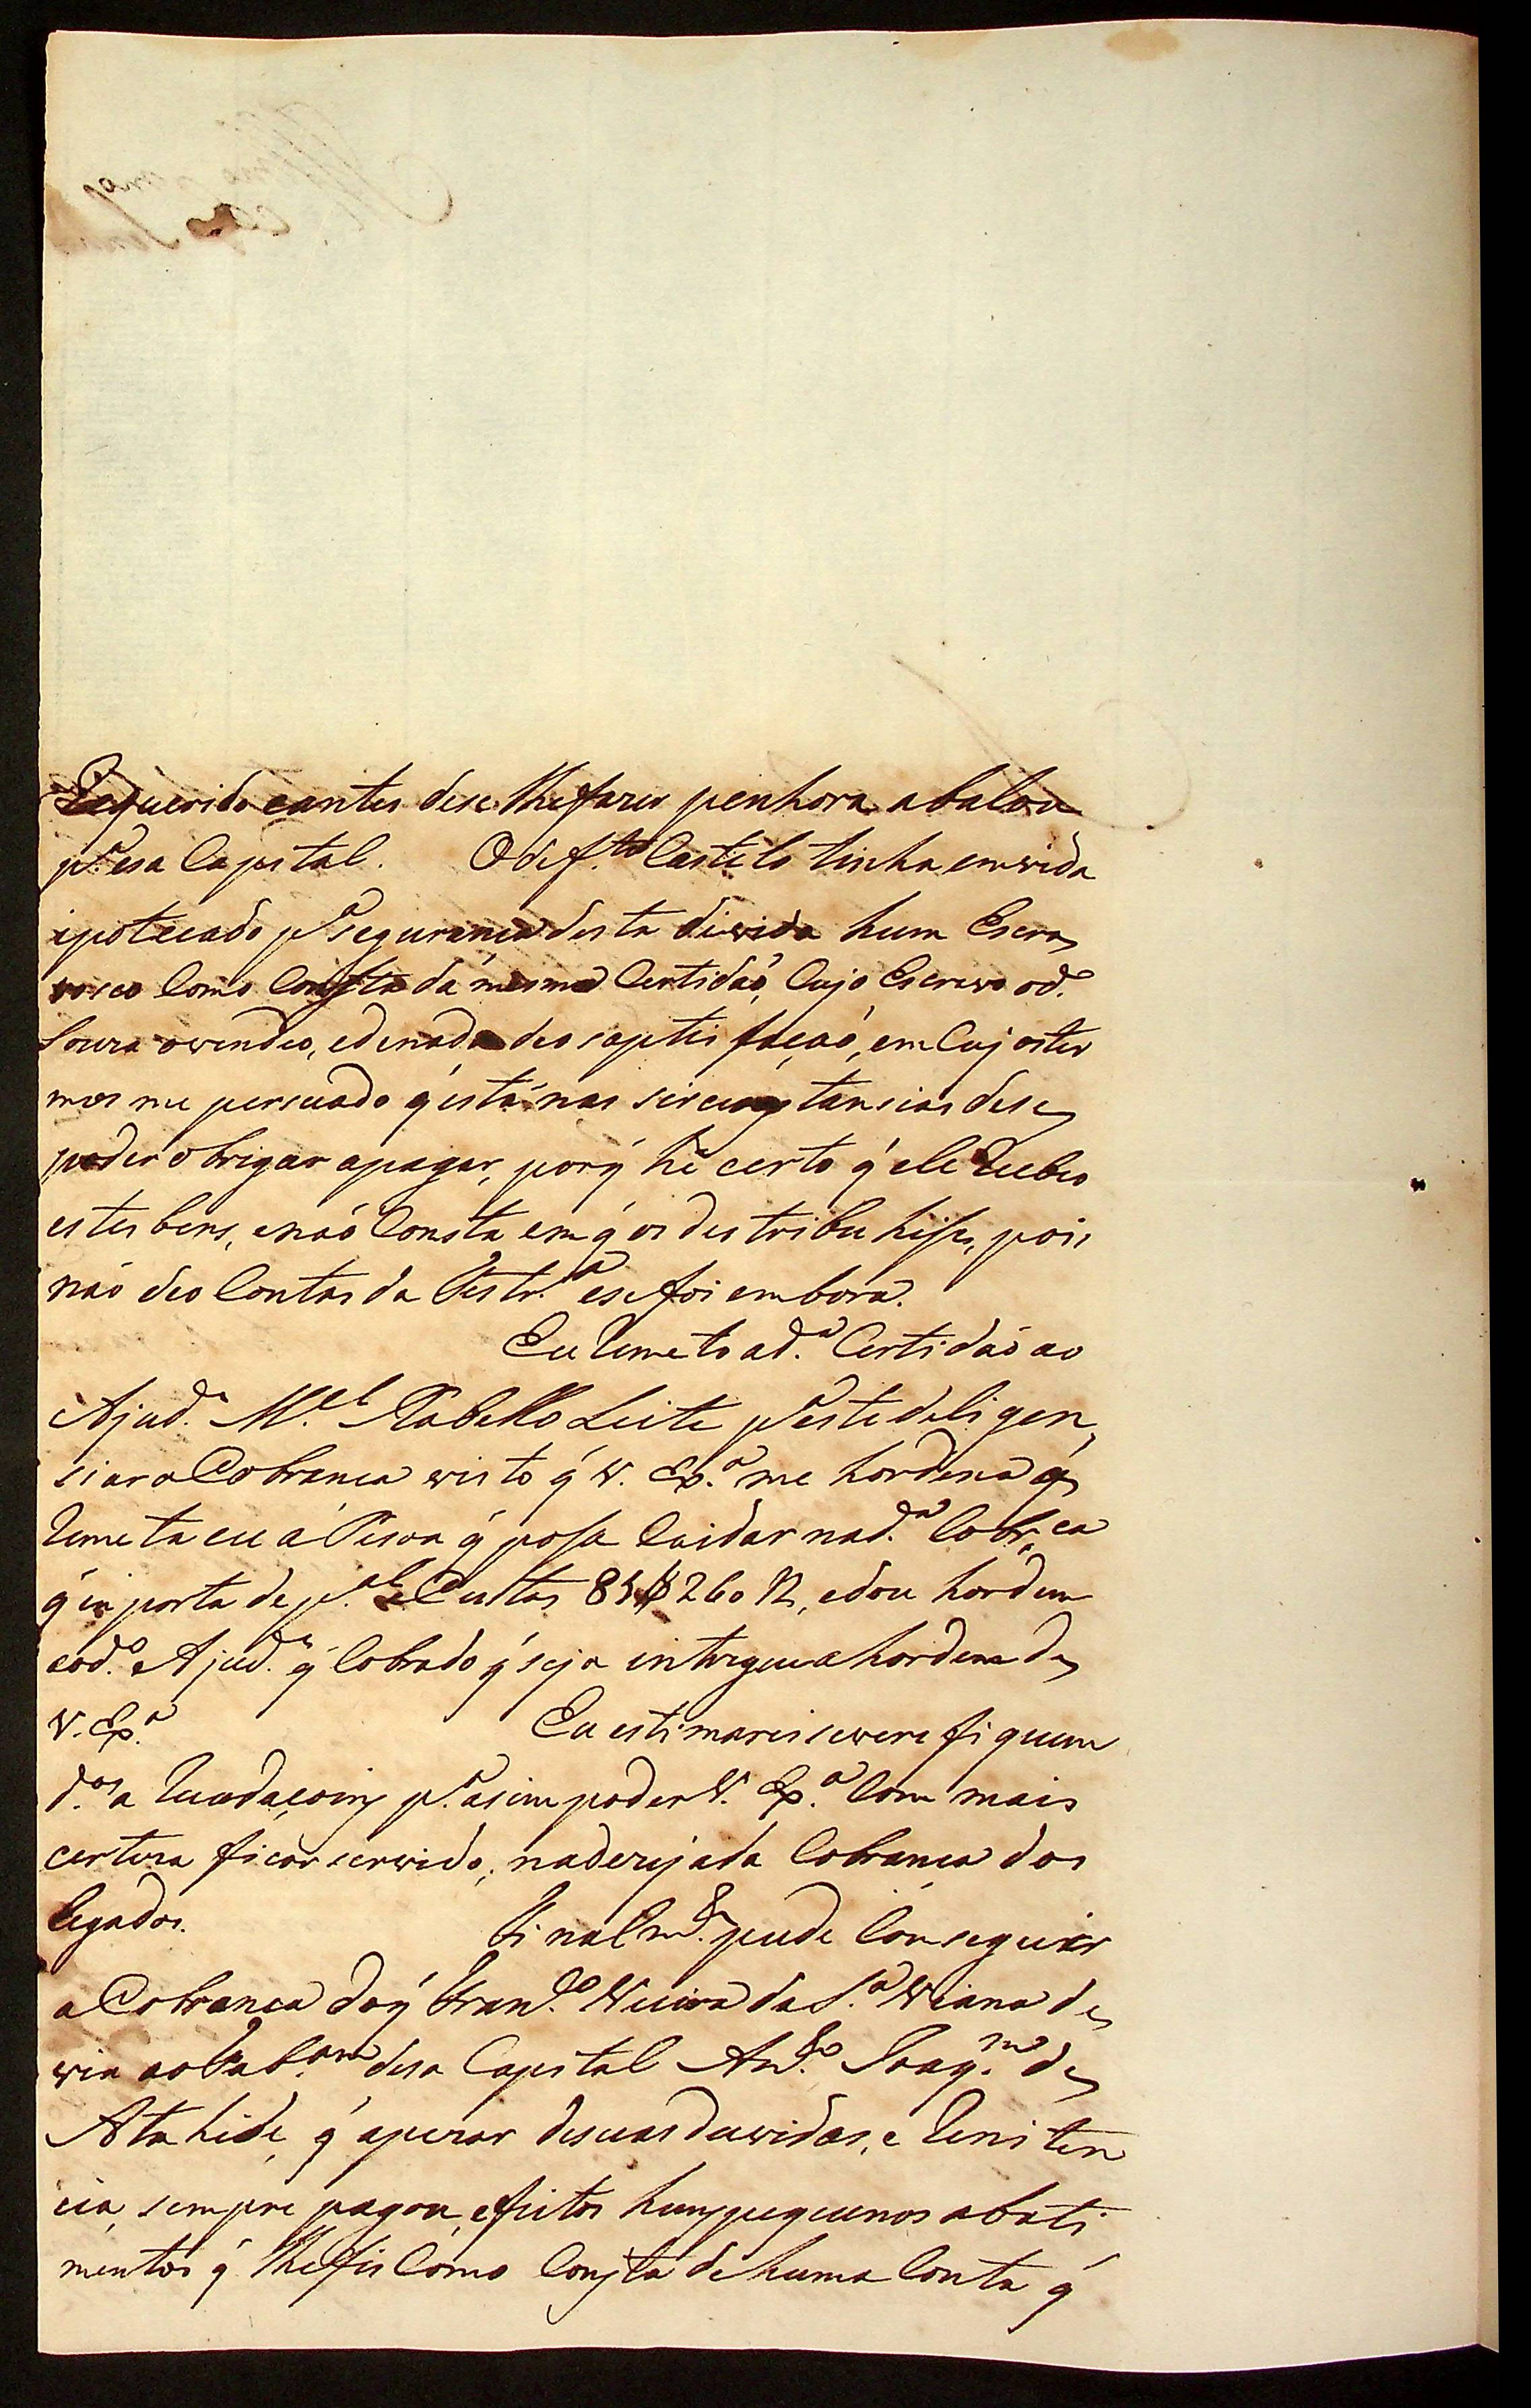 Requerido eantes dese lhefazer penhora abalou
p.ª esa Capital. Odef.to Castelo tinha emvida
ipotecado p.ª seguransa desta divida hum Escra
vo seo Como Consta da mesma Certidaõ, Cujo Escravo od.º
Souza ovendeo, edenada deo saptis façaõ, em Cujoster
mos me persuado q́ está nas sircunstansias dese
poder obrigar apagar, porq́ hé certo q́ ele Recebeo
estes bens, enaõ Consta em q́ os destribuhise, pois
naõ deo Contas da Testr.ª ese foi embora.
Eu Remeto ad.ª Certidaõ ao
Ajud.e M.el Rabello Leite p.ª este deligen
siar a Cobransa visto q́ V. Ex.ª me hordena q́
Remeta eu á Pesoa q́ posa Cuidar nad.ª Cobr.ca
q́ inporta de p.al e Custas 85$260 R, edou hordem
aod.º Ajud.e q́ Cobrado q́ seja intregue ahordem de
V. Ex.ª Eu estimarei severefiquem
d.as aRecadacoins p.ª asim poder V. Ex.ª Com mais
certeza ficar servido, nadezejada Cobransa dos
legados. Finalm.e pude Conseguir
aCobransa doq́ Fran.co Vieira da S.ª Viana de
via aoTab.am desa Capital An.to Joaq.m de
Atahide, q́ apezar desuas duvidas, e Reniten
cia, sempre pagou, efeitos huns pequenos abati
mentos q́ lhefis Como Consta de huma Conta q́